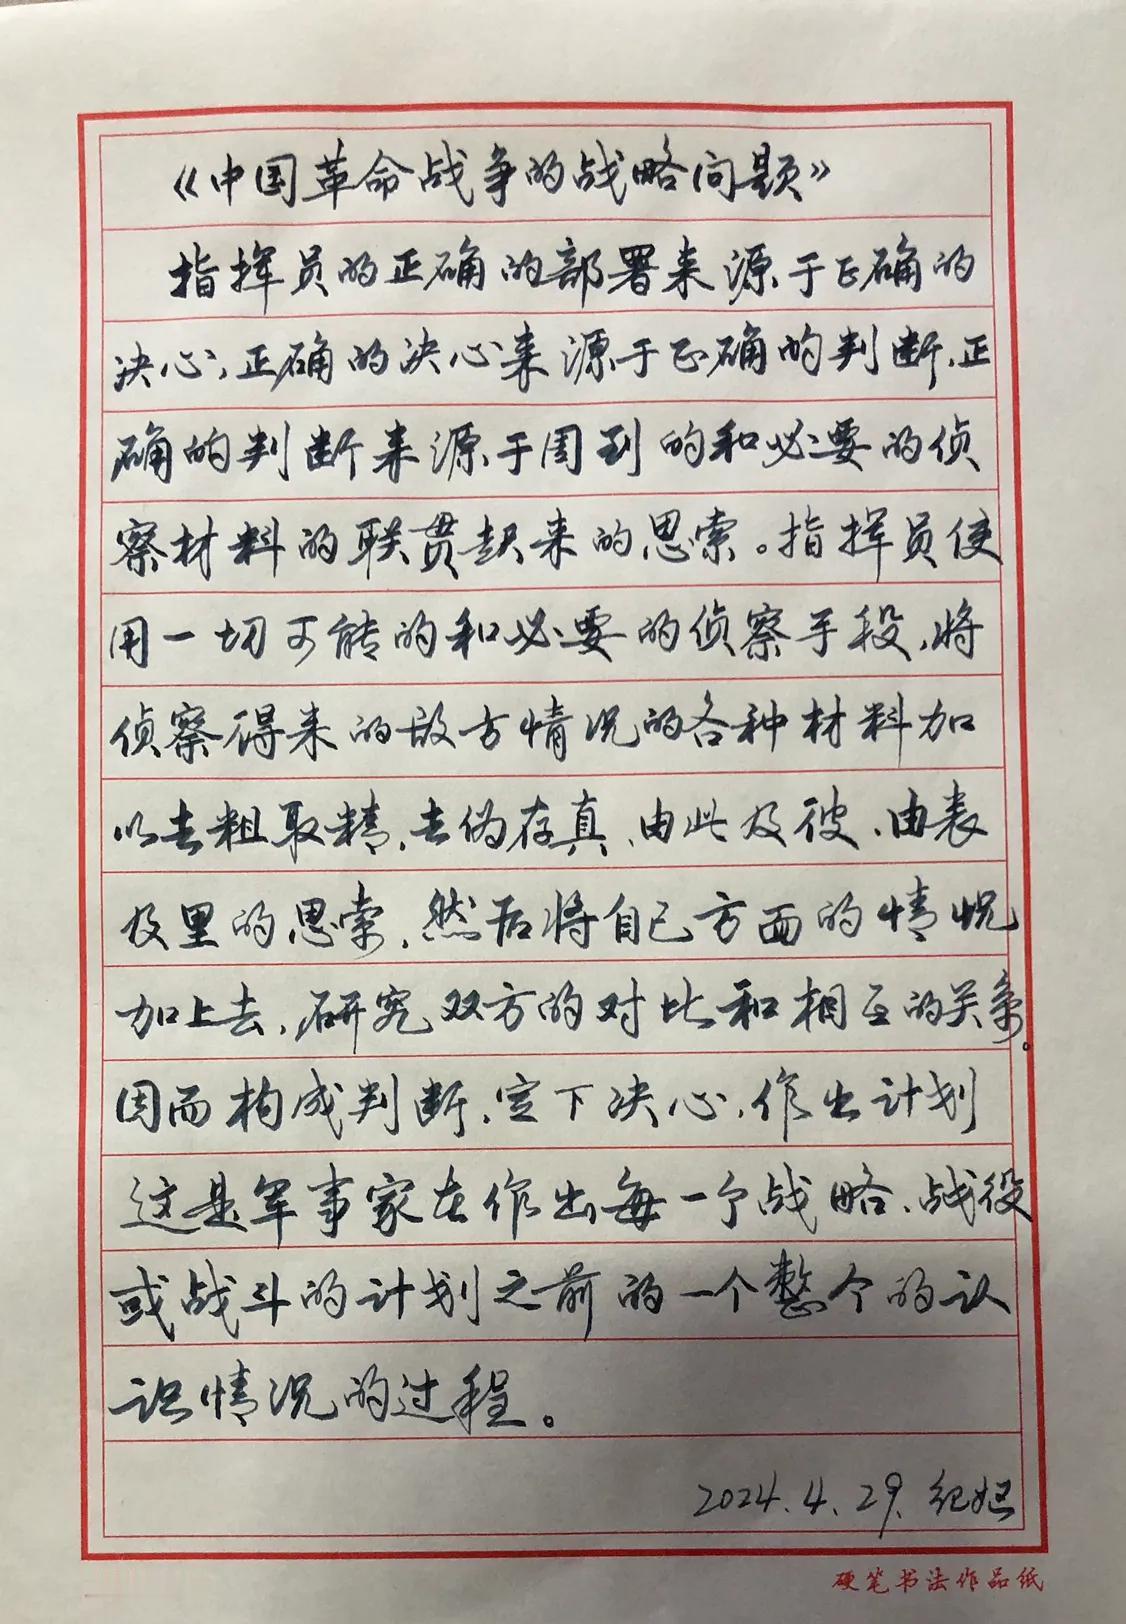 《中国革命战争的战略问题》
指挥员的正确的部署来源于正确的
决心,正确的决心来源于正确的判断,正
确的判断来源于周到的和必要的侦
察材料的联贯起来的思索。指挥员使
用一切可能的和必要的侦察手段,将
侦察得来的敌方情况的各种材料加
以去粗取精、去伪存真、由此及彼、由表
及里的思索,然后将自己方面的情况
加上去,研究双方的对比和相互的关系。
因而构成判断,定下决心,作出计划
这是军事家在作出每一个战略、战役
或战斗的计划之前的一个整个的认
识情况的过程。
2024.4.29.
硬笔书法作品纸